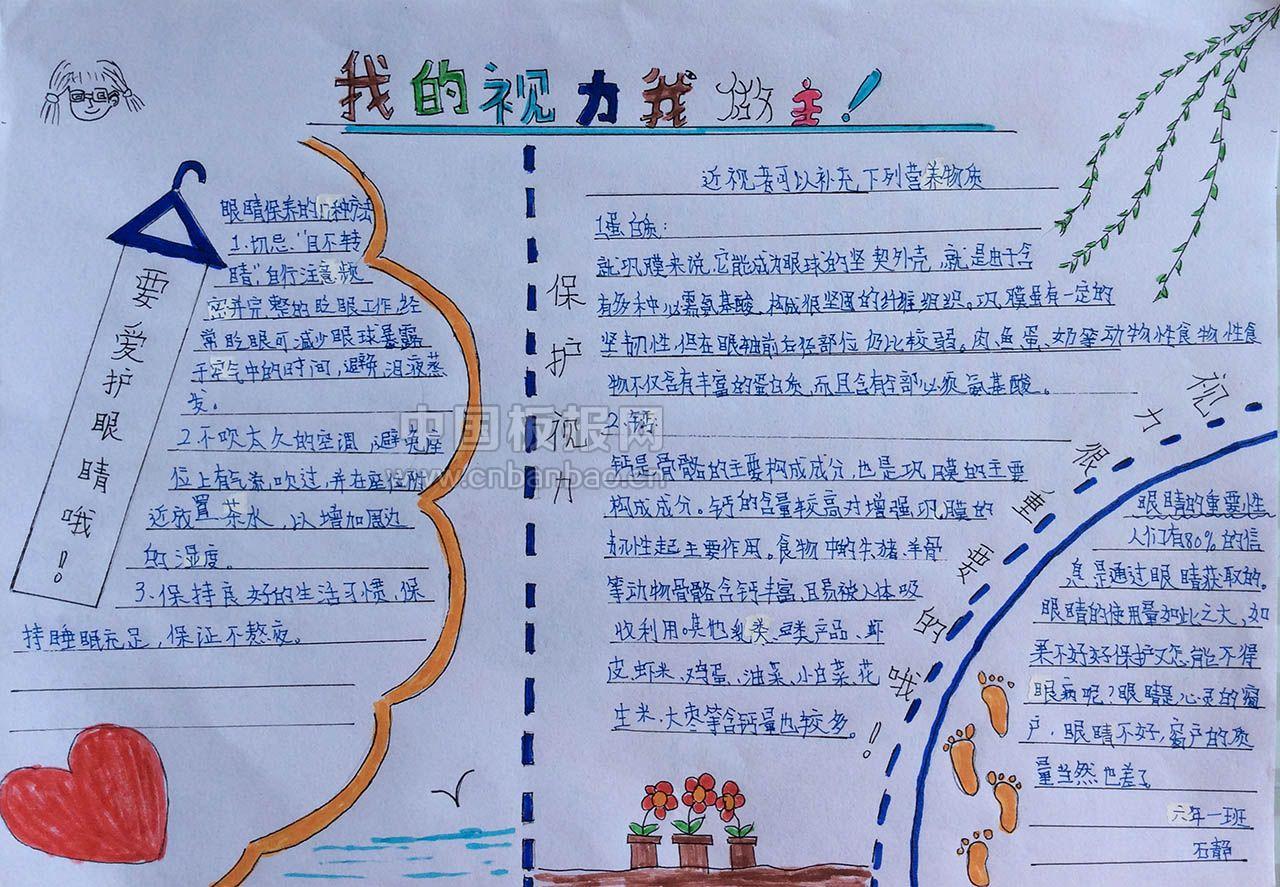 我的视力我做主!
要爱护眼睛哦!
眼睛保养的几种方法
1.切忌“目不转
睛”,自行注意频
密并完整的眨眼工作,经
常眨眼可减少眼球暴露
于空气中的时间,避免泪液蒸
发。
2.不吹太久的空调,避免座
位上有气流吹过,并在座位附
近放置茶水,以增加周边
的湿度。
3.保持良好的生活习惯,保
持睡眠充足,保证不熬夜。
保护视力
近视者可以补充下列营养物质
1蛋白质:
就巩膜来说,它能成为眼球的坚契外壳,就是由于含
有多种必需氨基酸,构成很坚固的纤维组织。巩膜虽有一定的
坚韧性,但在眼轴前后径部位仍比较弱。肉、鱼蛋、奶等动物性食物性食
物不仅含有丰富的蛋白质,而且含有全部必须氨基酸。
2.钙
钙是骨骼的主要构成成分,也是巩膜的主要
构成成分。钙的含量较高对增强巩膜的
韧性起主要作用。食物中的牛猪、羊骨
等动物骨骼含钙丰富,且易被人体吸
收利用。其他乳类、豆类产品、虾
皮、虾米、鸡蛋、油菜、小白菜、花
生米、大枣等含钙量也较多。
视力很重要的哦!
眼睛的重要性
人们有80%的信
息是通过眼睛获取的。
眼睛的使用量如此之大,如
果不好好保护又怎能不得
眼病呢?眼睛是心灵的窗
户,眼睛不好,窗户的质
量当然也差了
六年一班
石静
中国板报网
www.cnbanbao.cn